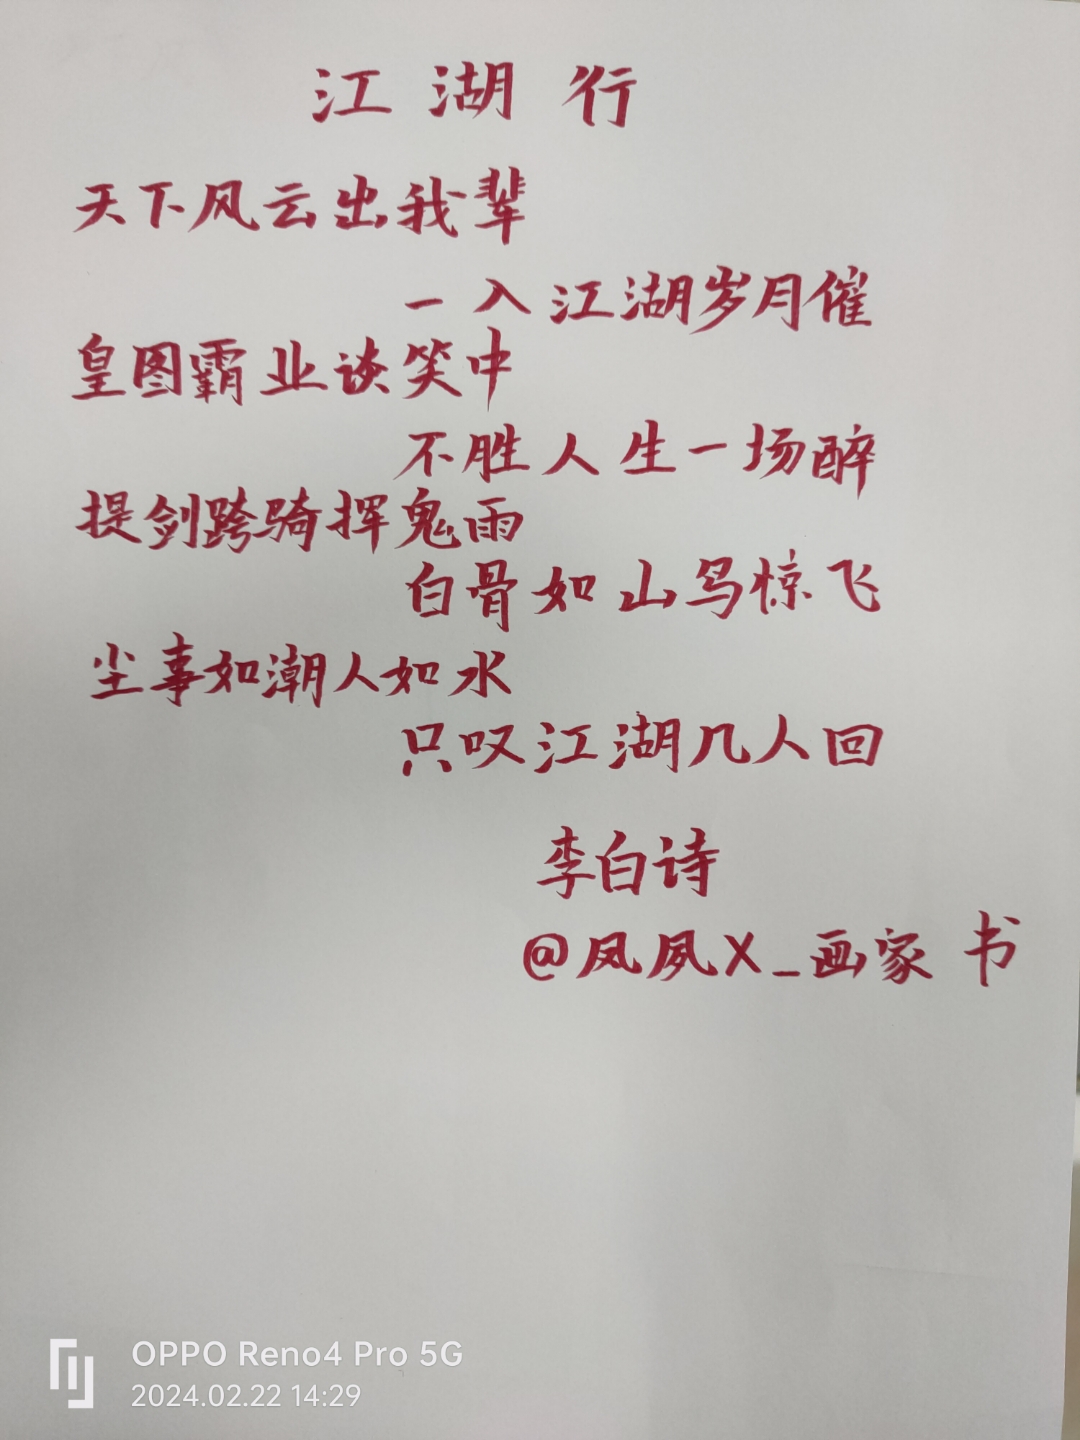 江湖行
天下风云出我辈
一入江湖岁月催
皇图霸业谈笑中
不胜人生一场醉
提剑跨骑挥鬼雨
白骨如山鸟惊飞
尘事如潮人如水
只叹江湖几人回
李白诗
@凤夙X_画家 书
OPPO Reno4 Pro 5G
2024.02.22 14:29